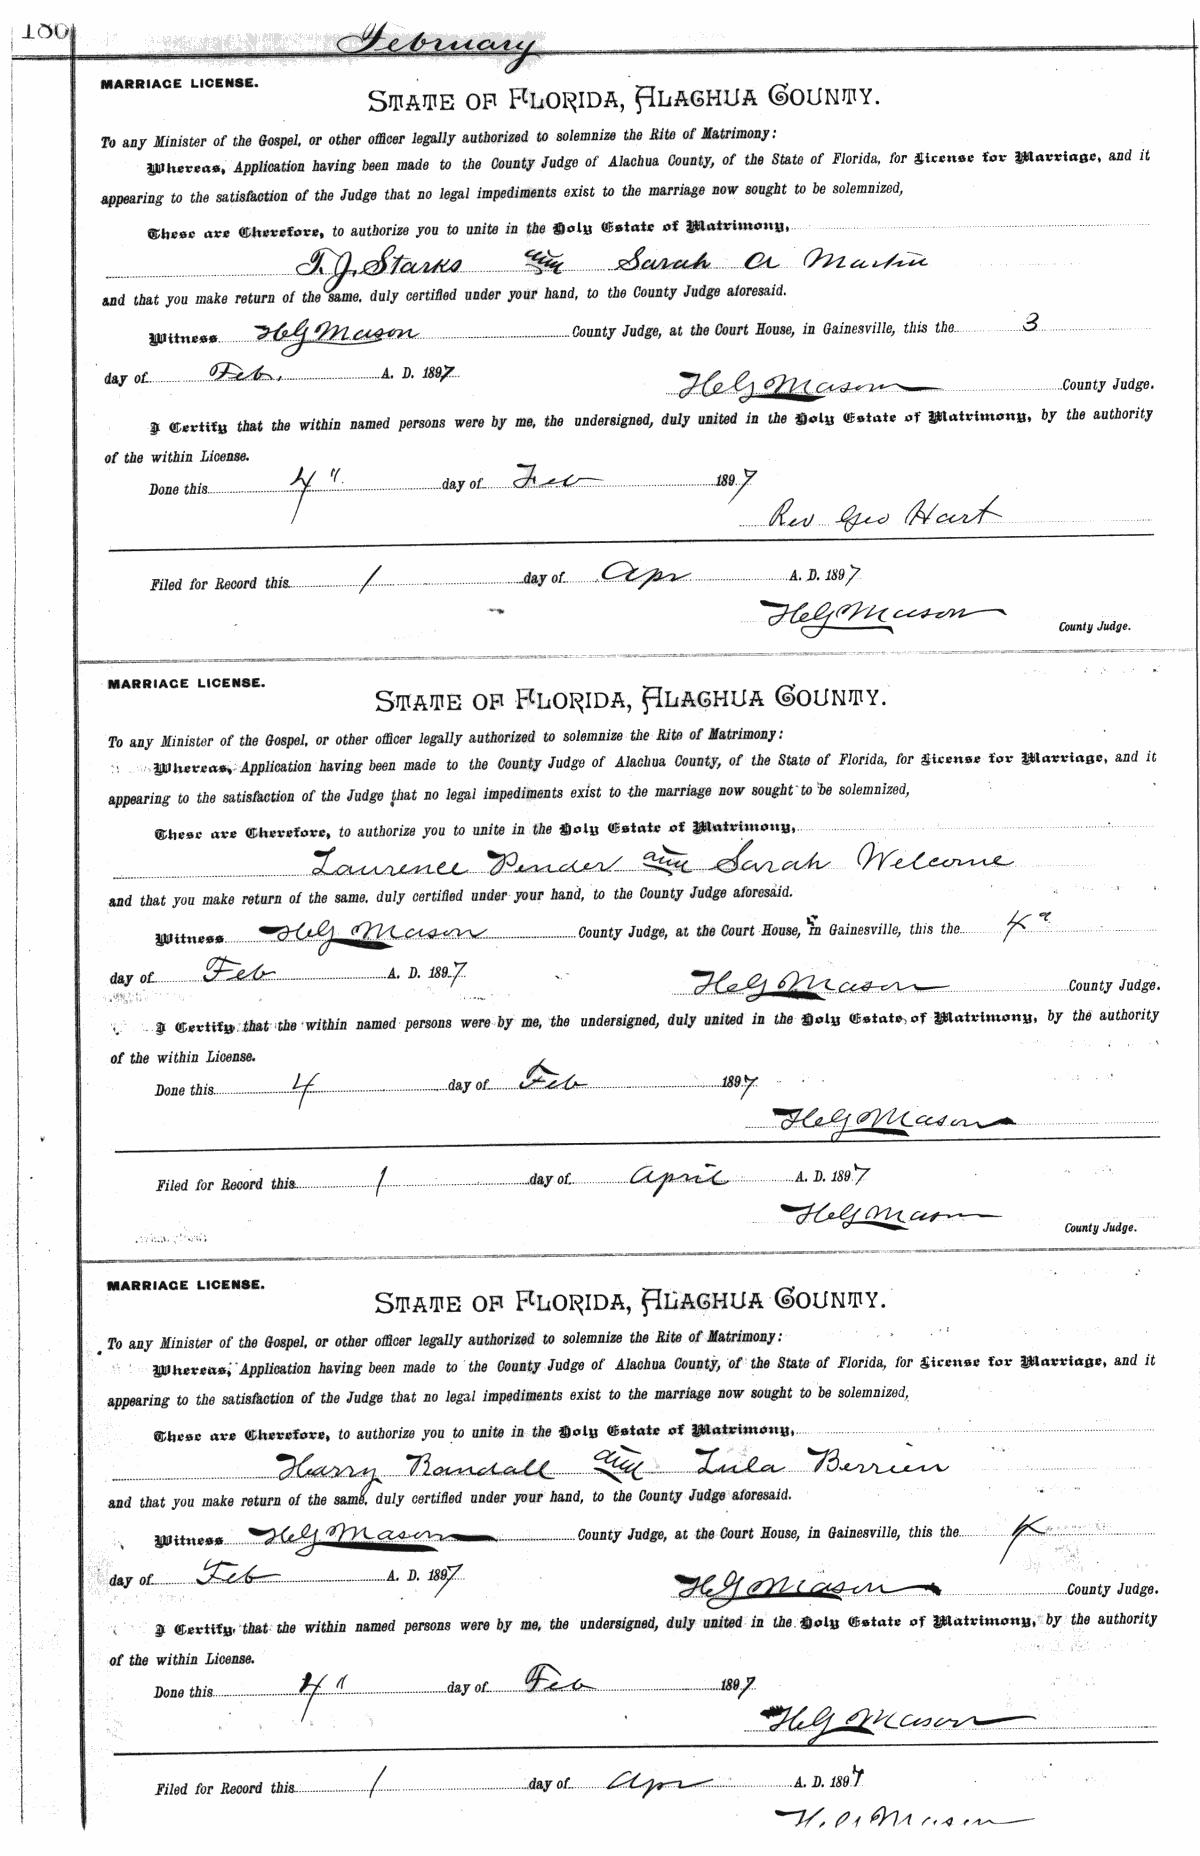 180
February
MARRIAGE LICENSE.
STATE OF FLORIDA, ALACHUA COUNTY.
To any Minister of the Gospel, or other officer legally authorized to solemnize the Rite of Matrimony:
Whereas, Application having been made to the County Judge of Alachua County, of the State of Florida, for License for Marriage, and it
appearing to the satisfaction of the Judge that no legal impediments exist to the marriage now sought to be solemnized,
These are Therefore, to authorize you to unite in the Holy Estate of Matrimony,
T. J. Starks and Sarah A Martin
and that you make return of the same, duly certified under your hand, to the County Judge aforesaid.
Witness H G Mason County Judge, at the Court House, in Gainesville, this the 3
day of Feb. A. D. 1897
H G Mason County Judge.
I Certify that the within named persons were by me, the undersigned, duly united in the Holy Estate of Matrimony, by the authority
of the within License.
Done this 4" day of Feb 1897
Rev Geo Hart
Filed for Record this 1 day of Apr A. D. 1897
H G Mason
County Judge.
MARRIAGE LICENSE.
STATE OF FLORIDA, ALACHUA COUNTY.
To any Minister of the Gospel, or other officer legally authorized to solemnize the Rite of Matrimony:
Whereas, Application having been made to the County Judge of Alachua County, of the State of Florida, for License for Marriage, and it
appearing to the satisfaction of the Judge that no legal impediments exist to the marriage now sought to be solemnized,
These are Therefore, to authorize you to unite in the Holy Estate of Matrimony,
Laurence Pender and Sarah Welcome
and that you make return of the same, duly certified under your hand, to the County Judge aforesaid.
Witness H G Mason County Judge, at the Court House, in Gainesville, this the 4"
day of Feb A. D. 1897
H G Mason County Judge.
I Certify that the within named persons were by me, the undersigned, duly united in the Holy Estate of Matrimony, by the authority
of the within License.
Done this 4 day of Feb 1897
H G Mason
Filed for Record this 1 day of April A. D. 1897
H G Mason
County Judge.
MARRIAGE LICENSE.
STATE OF FLORIDA, ALACHUA COUNTY.
To any Minister of the Gospel, or other officer legally authorized to solemnize the Rite of Matrimony:
Whereas, Application having been made to the County Judge of Alachua County, of the State of Florida, for License for Marriage, and it
appearing to the satisfaction of the Judge that no legal impediments exist to the marriage now sought to be solemnized,
These are Therefore, to authorize you to unite in the Holy Estate of Matrimony,
Harry Randall and Lula Berrien
and that you make return of the same, duly certified under your hand, to the County Judge aforesaid.
Witness H G Mason County Judge, at the Court House, in Gainesville, this the 4
day of Feb A. D. 1897
H G Mason County Judge.
I Certify, that the within named persons were by me, the undersigned, duly united in the Holy Estate of Matrimony, by the authority
of the within License.
Done this 4" day of Feb 1897
H G Mason
Filed for Record this 1 day of Apr A. D. 1897
H. G. Mason